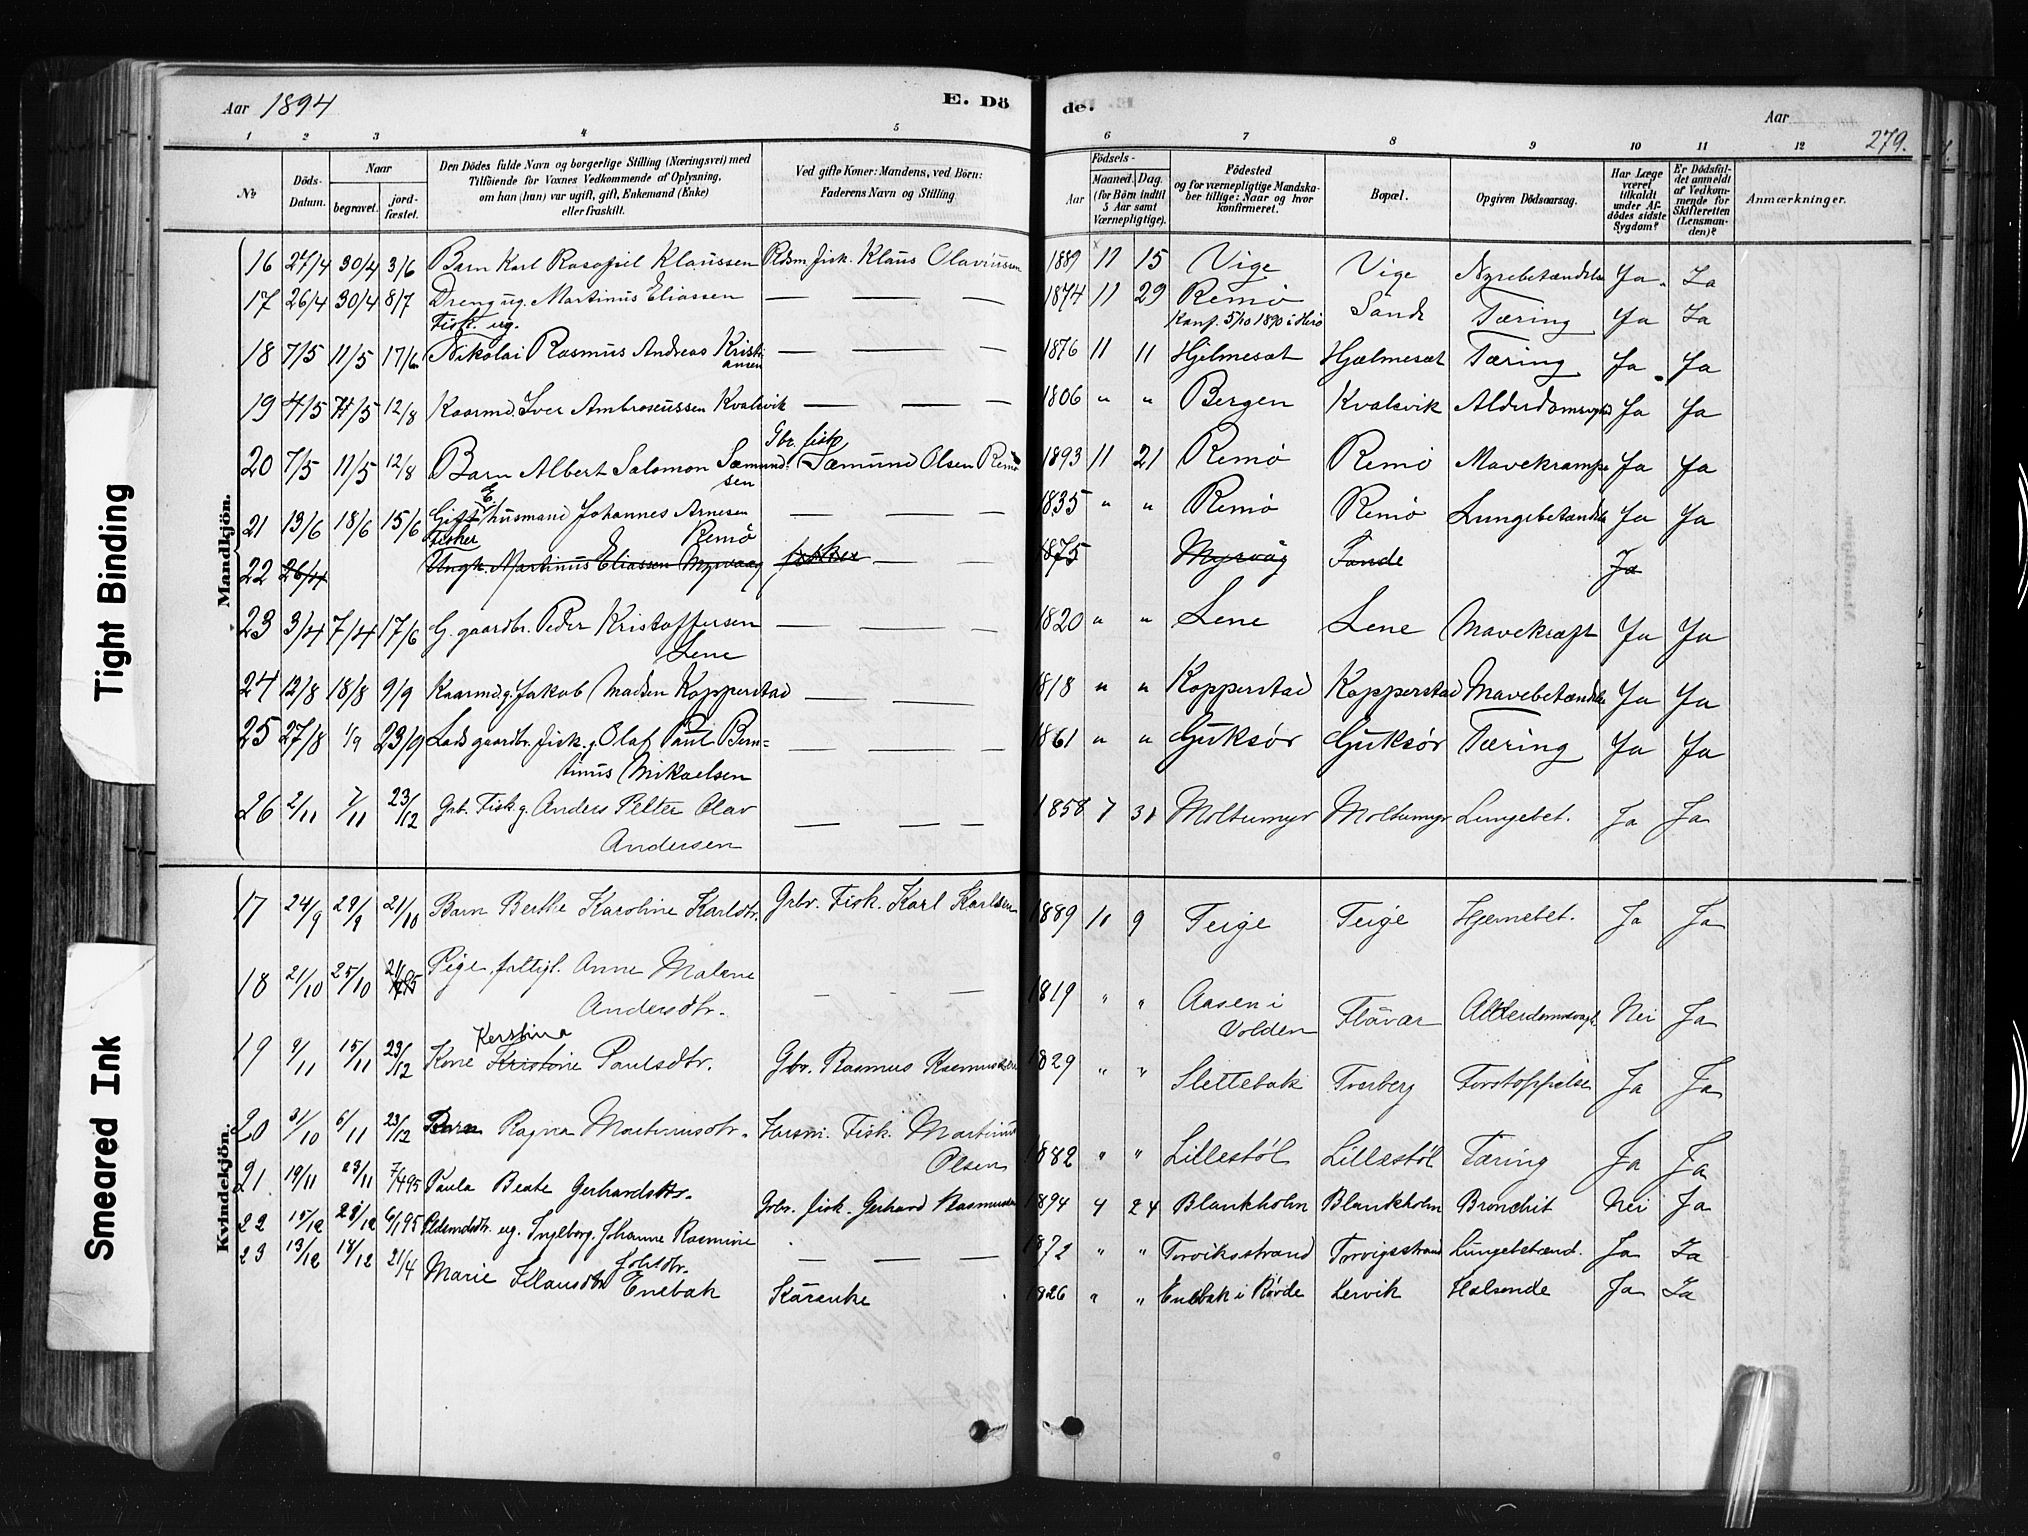 Aar 1894
E. Dö
de.
Aar
279.
1 2 3 4 5 6 7 8 9 10 11 12
No
Döds-Datum.
Naar
begravet.
jord-fæstet.
Den Dödes fulde Navn og borgerlige Stilling (Næringsvei) med
Tilföiende for Voxnes Vedkommende af Oplysning,
om han (hun) var ugift, gift, Enkemand (Enke)
eller fraskilt.
Ved gifte Koner: Mandens, ved Börn:
Faderens Navn og Stilling
Födsels-
Aar
Maaned. Dag.
(for Börn indtil
5 Aar samt
Værnepligtige).
Födested
og for værnepligtige Mandska-
ber tillige: Naar og hvor
konfirmeret.
Bopæl.
Opgiven Dödsaarsag.
Har Læge
været
tilkaldt
under Af-
dödes sidste
Sygdom?
Er Dödsfal-
det anmeldt
af Vedkom-
mende for
Skifteretten
(Lensman-
den)?
Anmærkninger.
Mandkjön.
16 27/4 30/4 3/6 Barn Karl Klaussen Fisk. Klaus Olavsen 1889 11 15 Vige Vige Nyrebetændelse Ja Ja
17 26/4 30/4 8/7 Dreng ug. Martinus Eliassen — — — 1874 11 29 Remö Sande Tæring Ja Ja
Fisk. ug.
Konf. 5/10 1890 i Herö
18 7/5 11/5 17/6 Nikolai Rasmus Andreas Kristi-
ansen — — — 1876 11 11 Hjelmesæt Hjelmesæt Tæring Ja Ja
19 4/5 11/5 12/8 Kaarmd. Iver Kvalsvik — — — 1806 " " Bergen Kvalsvik Ja Ja
Gbr. fisk
20 7/5 11/5 12/8 Barn Albert Salomon Sæmund-
sen Sæmund Olsen Remö 1893 11 21 Remö Remö Mavekrampe Ja Ja
21 13/6 18/6 15/6 Gift husmand Johannes Arnesen — — — 1835 " " Remö Remö Lungebetændelse Ja Ja
Fisker Remö
22 26/4 Ungk. Martinus Eliassen Myrvaag fisker — — 1875 Myrvåg Sande Ja
23 3/4 7/4 17/6 G. gaardbr. Peder Kristoffersen — — — 1820 " " Lene Lene Mavekræft Ja Ja
Lene
24 12/8 18/8 9/9 Kaarmd. g. Jakob Madsen Kopperstad — — — 1818 " " Kopperstad Kopperstad Mavebetændelse Ja Ja
25 27/8 1/9 23/9 gaardbr. fisk. g. Olaf Paul Bern-
tinus Mikaelsen — — — 1861 " " Gjuksør Gjuksør Tæring Ja Ja
26 2/11 7/11 23/12 Grb. Fisk. g. Anders Petter Olav
Andersen — — — 1858 7 31 Moltumyr Moltumyr Lungebet. Ja Ja
Kvindekjön.
17 24/9 29/9 21/10 Barn Berthe Karoline Karlsdtr. Grbr. Fisk. Karl Karlsen 1889 11 9 Teige Teige Hjernebet. Ja Ja
18 21/10 25/10 Pige, fattigl. Anne Malene
Andersdtr. — — — 1819 " " Aasen i
Volden Flåvær Alderdomssvagh. Nei Ja
Kerstina
19 9/11 15/11 23/12 Kone Kristine Paulsdtr. Gbr. Rasmus Rasmussen 1829 " " Slettebak Tverberg Forstoppelse Ja Ja
20 31/10 6/11 23/12 Barn Ragna Martinusdtr. Husm. Fisk. Martinus
Olsen 1882 " " Lillestöl Lillestöl Tæring Ja Ja
21 19/11 23/11 7/4 95 Paula Beate Gerhardsdtr. Grbr. fisk. Gerhard Rasmussen 1894 4 24 Blankholm Blankholm Bronchit Nei Ja
22 15/12 28/12 6/1 95 ug. Ingeborg Johanne Rasmine — — — 1872 " " Torviksstrand Torvigsstrand Lungebetænd. Ja Ja
23 13/12 18/12 21/4 Marie Klausdtr. Enebak Kårenke 1826 " " Enebak i Røvde Lervik Halsende Ja Ja
Tight Binding
Smeared Ink